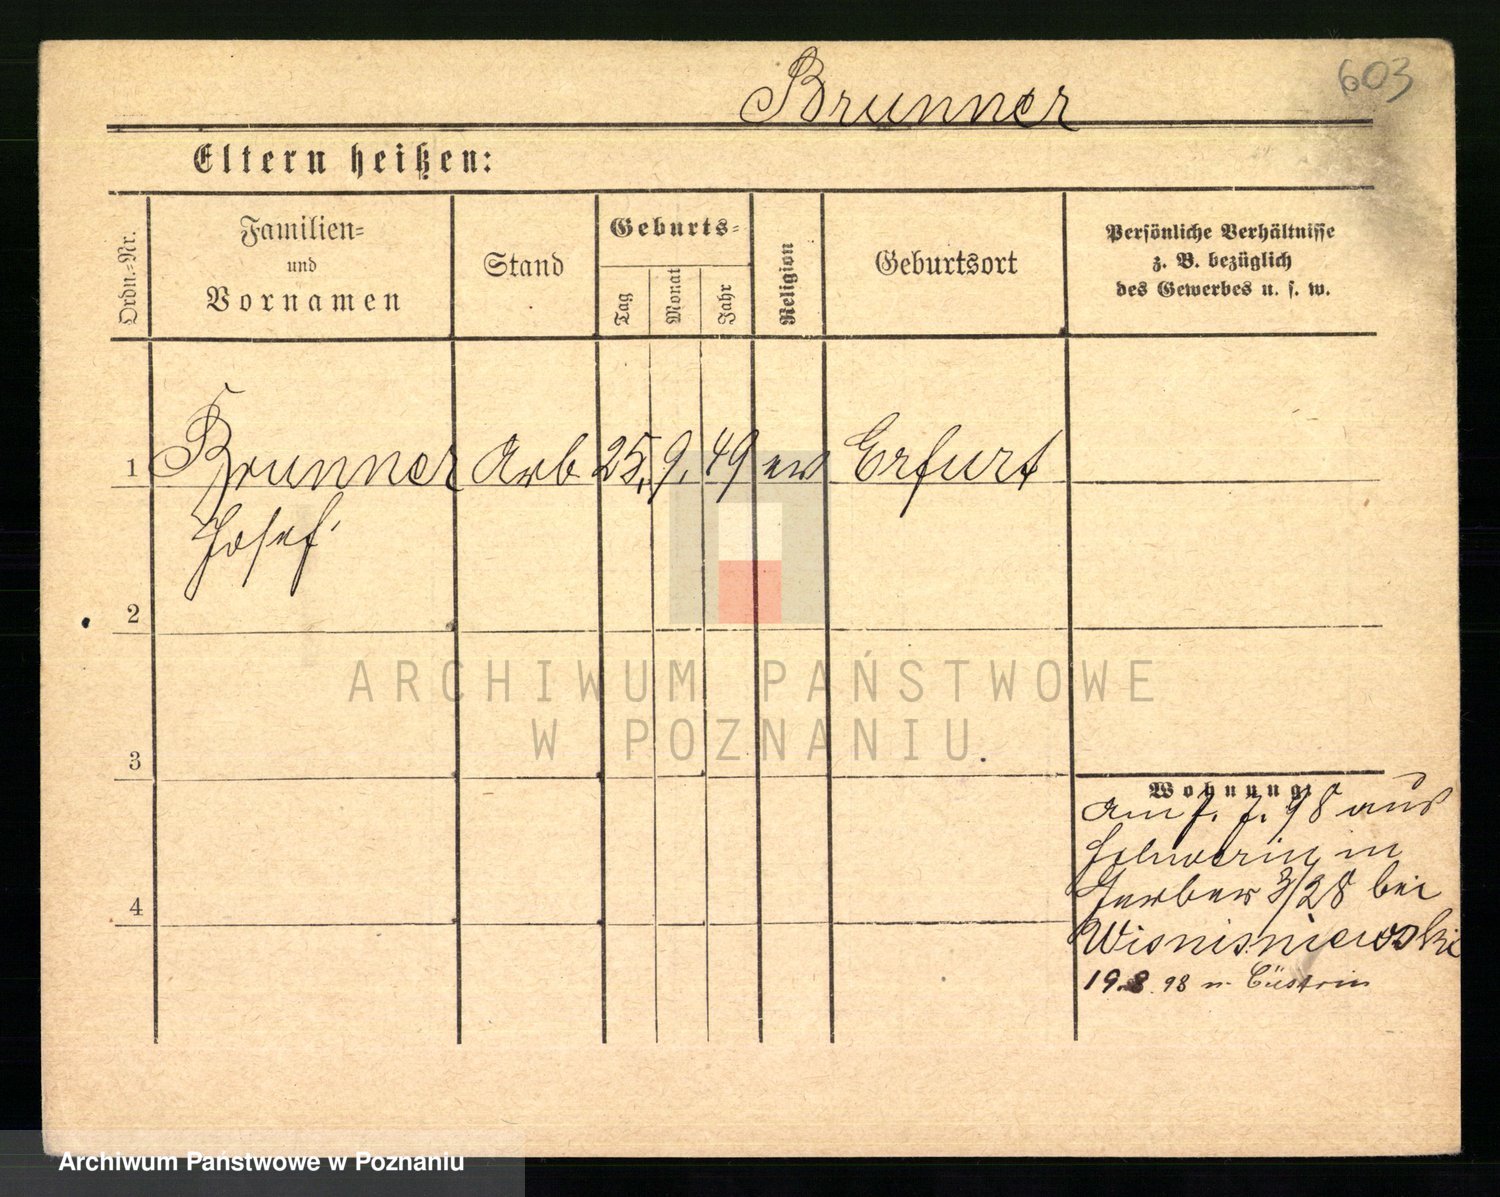 603
Brunner
Eltern heißen:
Ordn.-Nr.
Familien-
und
Vornamen
Stand
Geburts-
Tag
Monat
Jahr
Religion
Geburtsort
Persönliche Verhältnisse
z. B. bezüglich
des Gewerbes u. s. w.
1 Brunner Arb 25. 9. 49 ev Erfurt
Josef
2
ARCHIWUM PAŃSTWOWE
W POZNANIU
3
Wohnung:
am 7. 7. 98 aus
Schwerin in
Gerber 3/28 bei
Wisnisniewski
4
19.8.98 n. Cüstrin
Archiwum Państwowe w Poznaniu